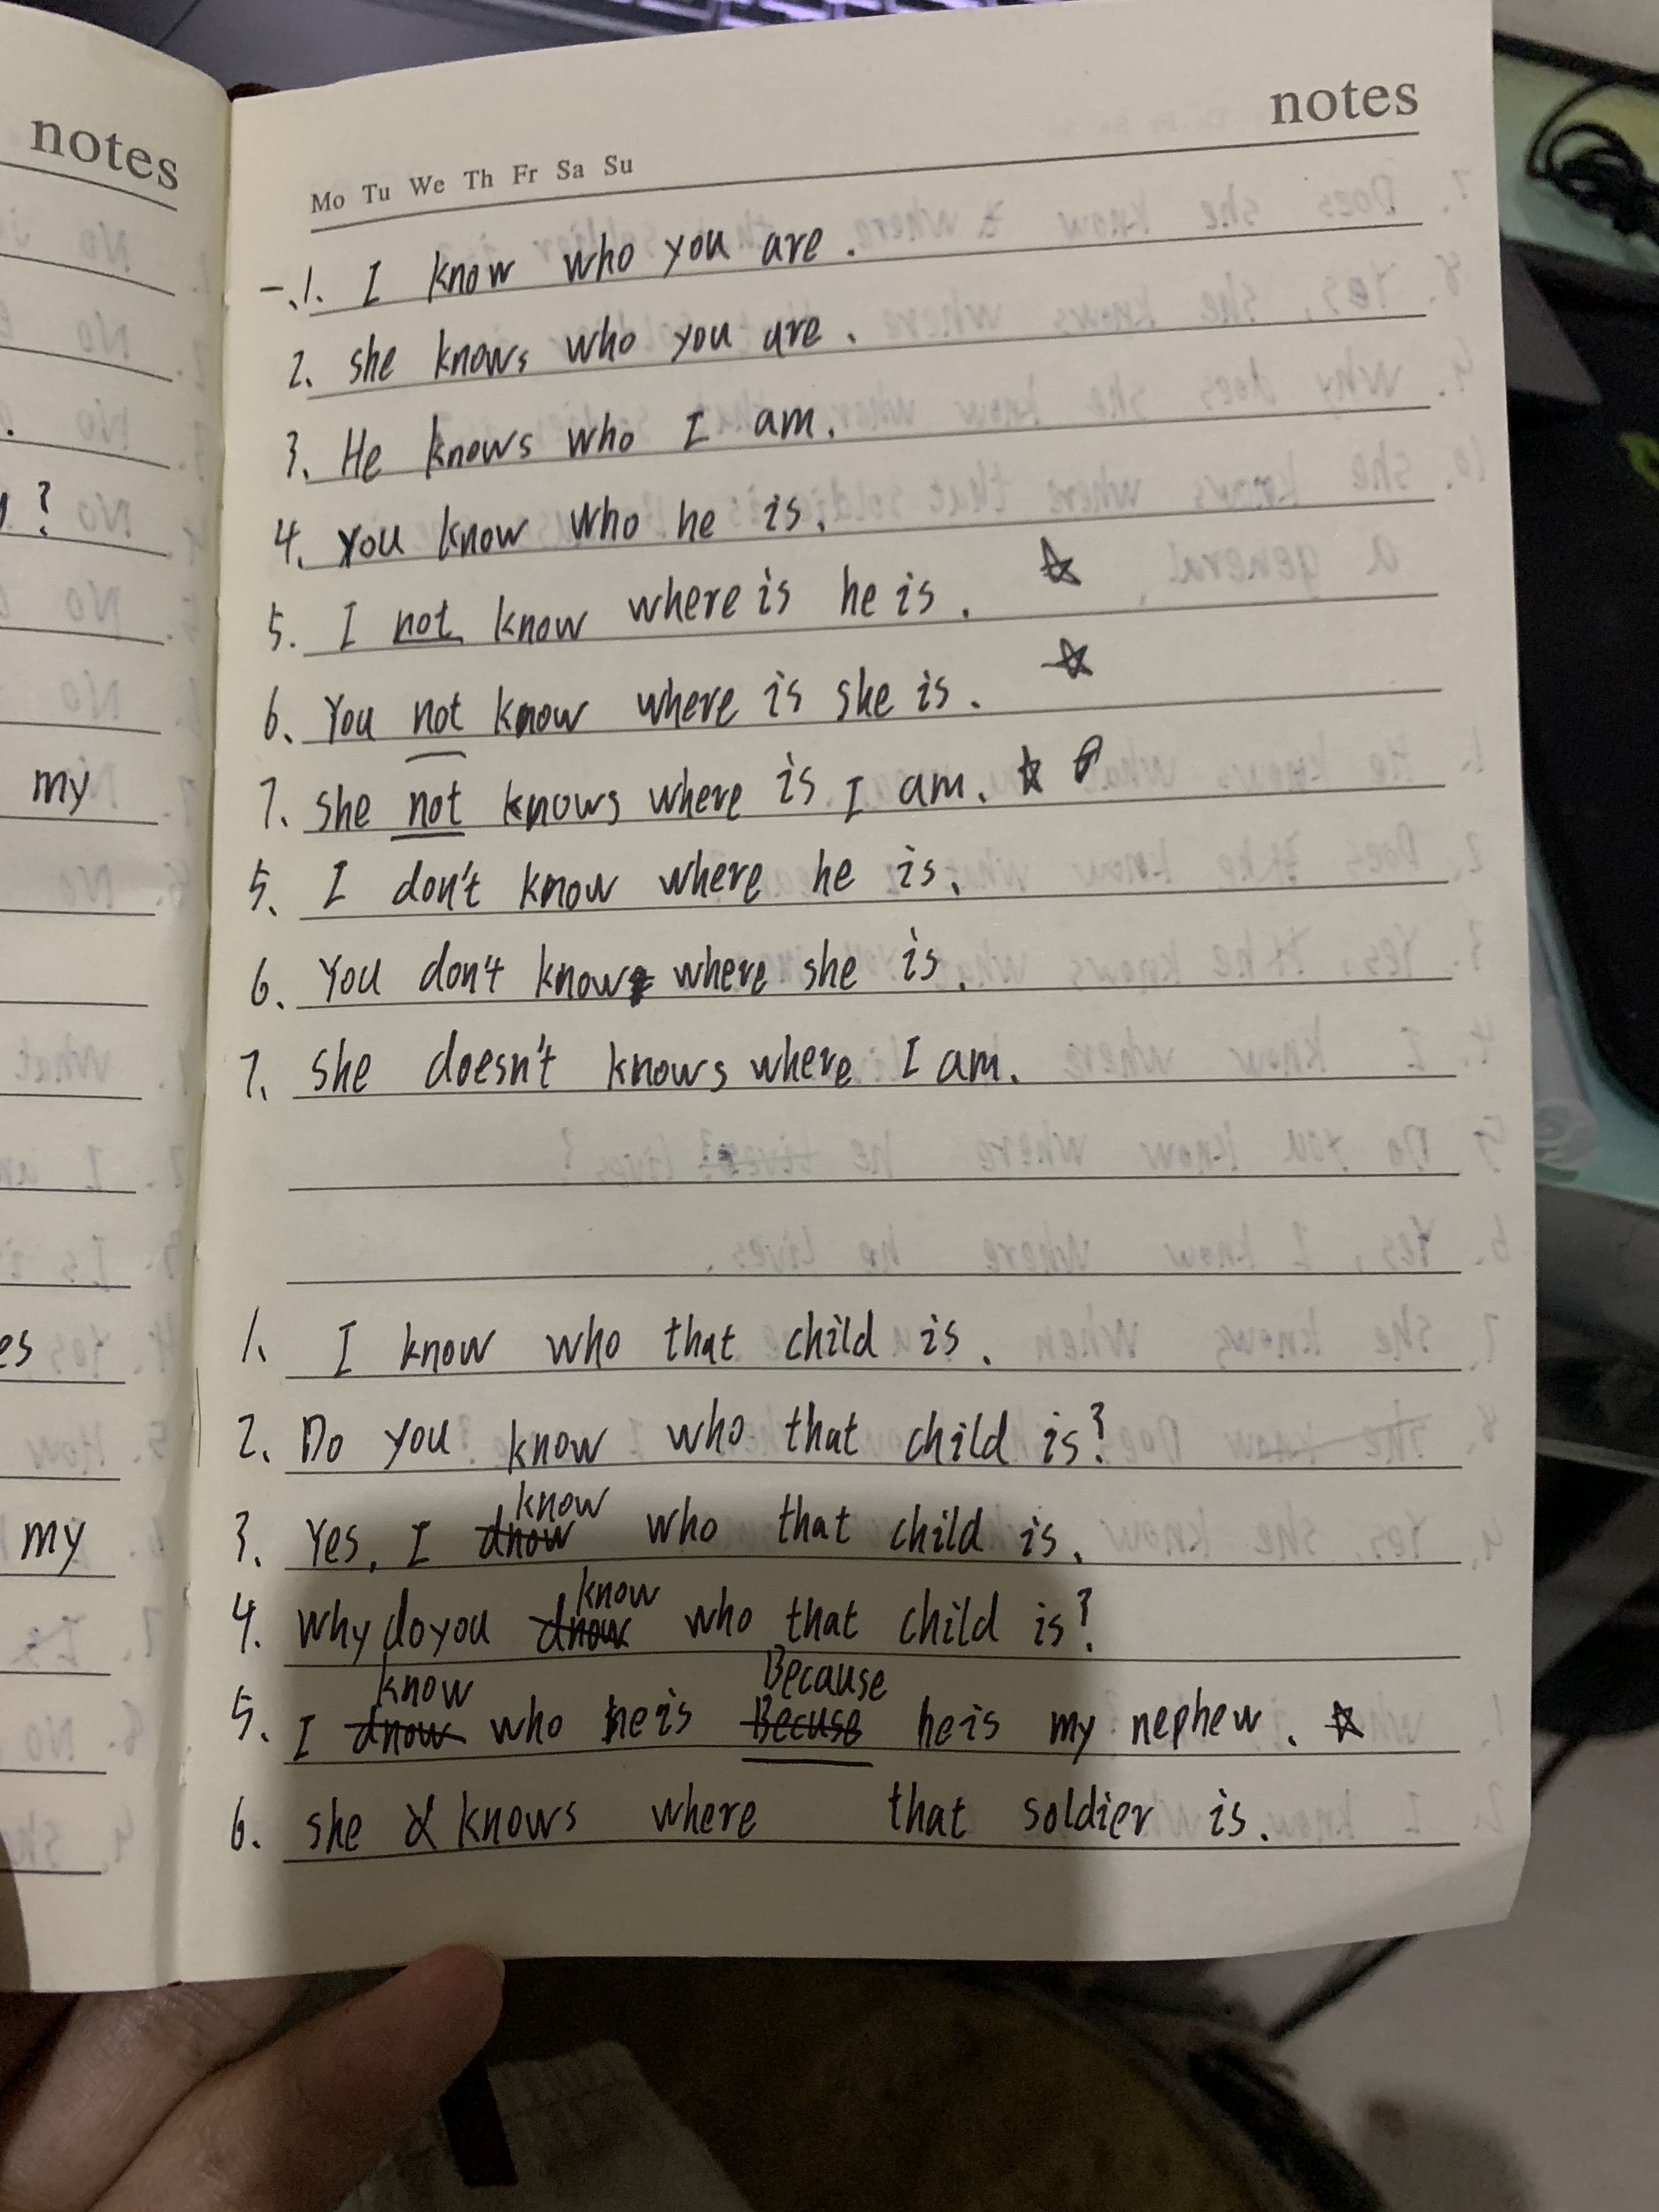 notes
?
my
es
my
notes
Mo Tu We Th Fr Sa Su
一、1. I know who you are.
2. she knows who you are.
3. He knows who I am.
4. you know who he is.
5. I not know where is he is.
6. You not know where is she is.
7. she not knows where is I am.
5. I don't know where he is.
6. You don't know where she is.
7. she doesn't knows where I am.
1. I know who that child is.
2. Do you know who that child is?
know
3. Yes, I dnow who that child is.
know
4. Why do you dnow who that child is?
know Because
5. I dnow who he is Becuse he is my nephew.
6. she knows where that soldier is.